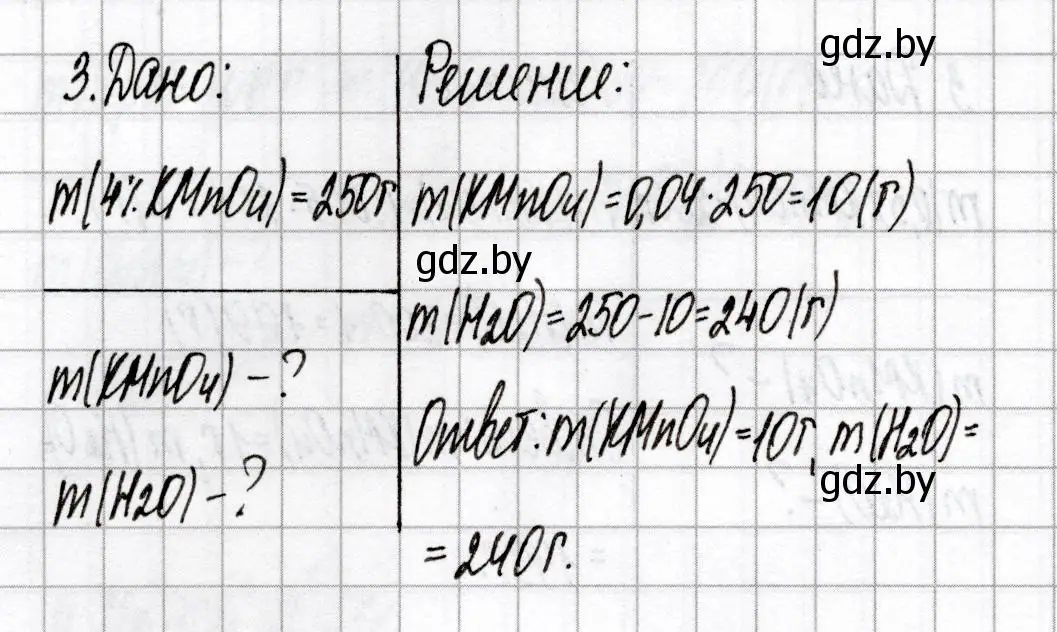 gdz.by
3. Дано:
m(4% KMnO4) = 250г
m(KMnO4) - ?
m(H2O) - ?
Решение:
m(KMnO4) = 0,04 · 250 = 10 (г)
gdz.by
m(H2O) = 250 - 10 = 240 (г)
Ответ: m(KMnO4) = 10г, m(H2O) =
gdz.by
= 240г.